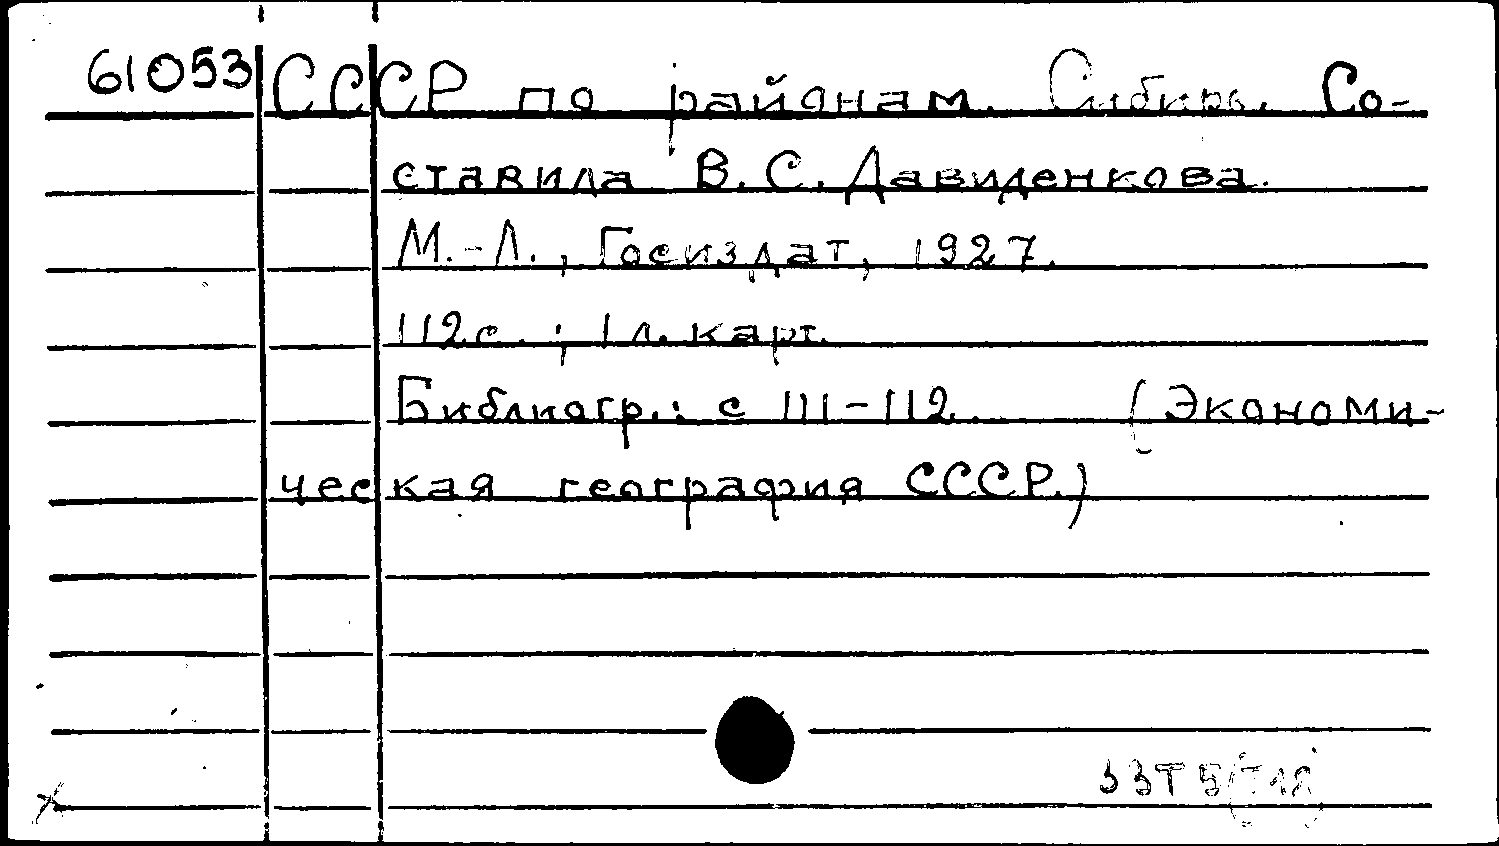 61053 СССР по районам. Сибирь. Со-
ставила В.С. Давиденкова.
М.-Л., Госиздат, 1927.
112с.; 1 л. карт.
Библиогр.: с 111-112. (Экономи-
ческая география СССР.)